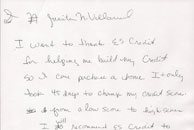 I want to thank ES Credit
for helping me build my Credit
so I can purchase a home. I only
took 45 days to change my credit score
from a low score to high score
I will recommend ES Credit to